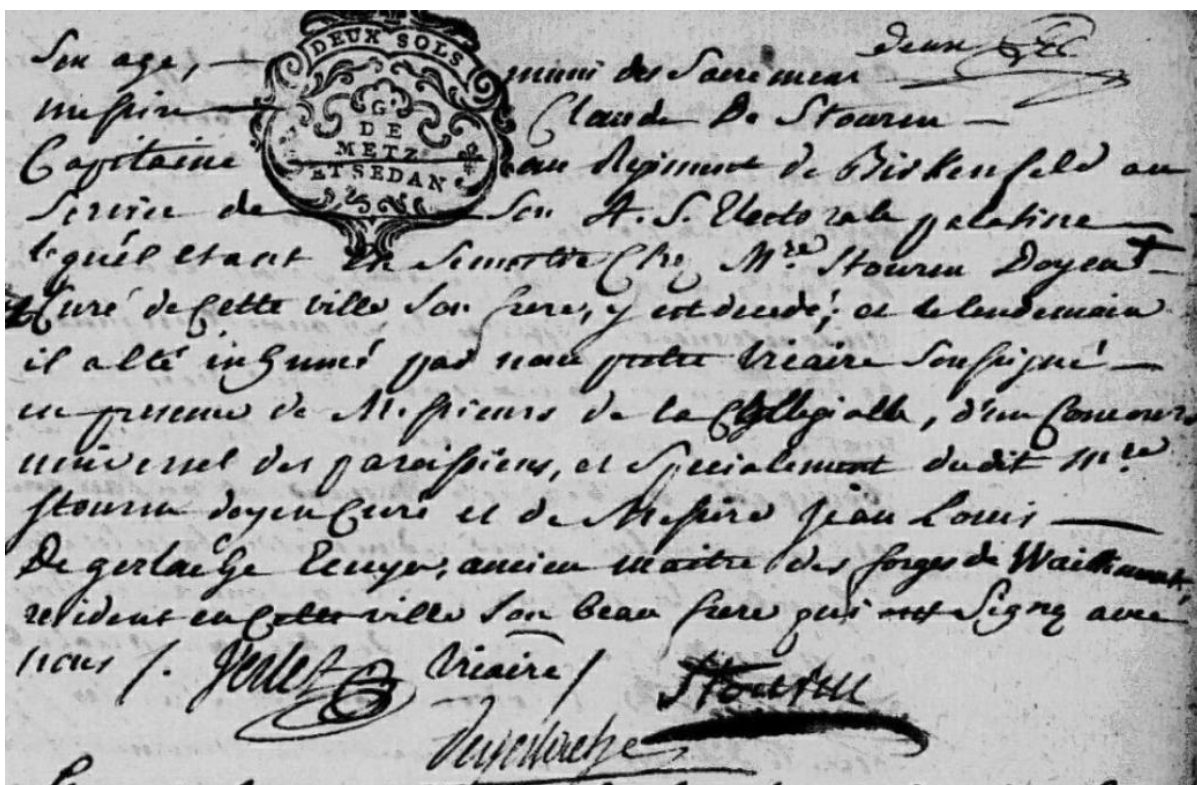 Son age, — muni des Sacremens deux
DEUX SOLS
G.
DE
METZ
ET SEDAN
messire — Claude De Stourm —
Capitaine au Regiment de Birkenfeld au
Service de Son A. S. Electorale palatine —
lequél etant En Semestre Chez Mre Stourm Doyen
Curé de Cette ville Son frere, y est decedé; et le lendemain
il a eté inhumé par nous pretre Vicaire Soussigné —
en presence de Messieurs de la Collegialle, d'un Concours
universel des paroissiens, et Specialement dudit Mre
Stourm doyen Curé et de Messire Jean Louis —
De gerlache Ecuyer, ancien maitre des forges de Waillimont,
resident en Cette ville Son beau frere qui ont Signé avec
nous /. Vicaire / Stourm
Degerlache